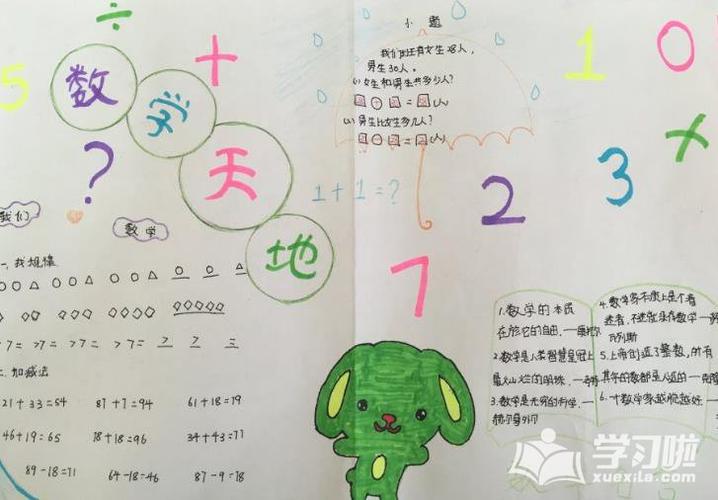 ÷
+
5
数学天地
?
小题
我们班有女生28人,
男生30人。
(1)女生和男生共多少人?
(2)男生比女生多几人?
1+1=?
1
0
×
2
3
7
我们
数学
一、找规律
○○△○○△○○△○○△
>7=>7=>7=>7=> > =
二、加减法
21+33=54 87+7=94 61+18=79
46+19=65 78+18=96 34+43=77
89-18=71 64-18=46 87-9=78
1.数学的本质
在於它的自由,
2.数学是人类智慧皇冠上
最灿烂的明珠,
3.数学是无穷的科学,
4.数学家本质上是个着
迷者,不迷就没有数学
5.上帝创造了整数,所有
其余的数都是人造的
6.
学习啦
xuexila.com